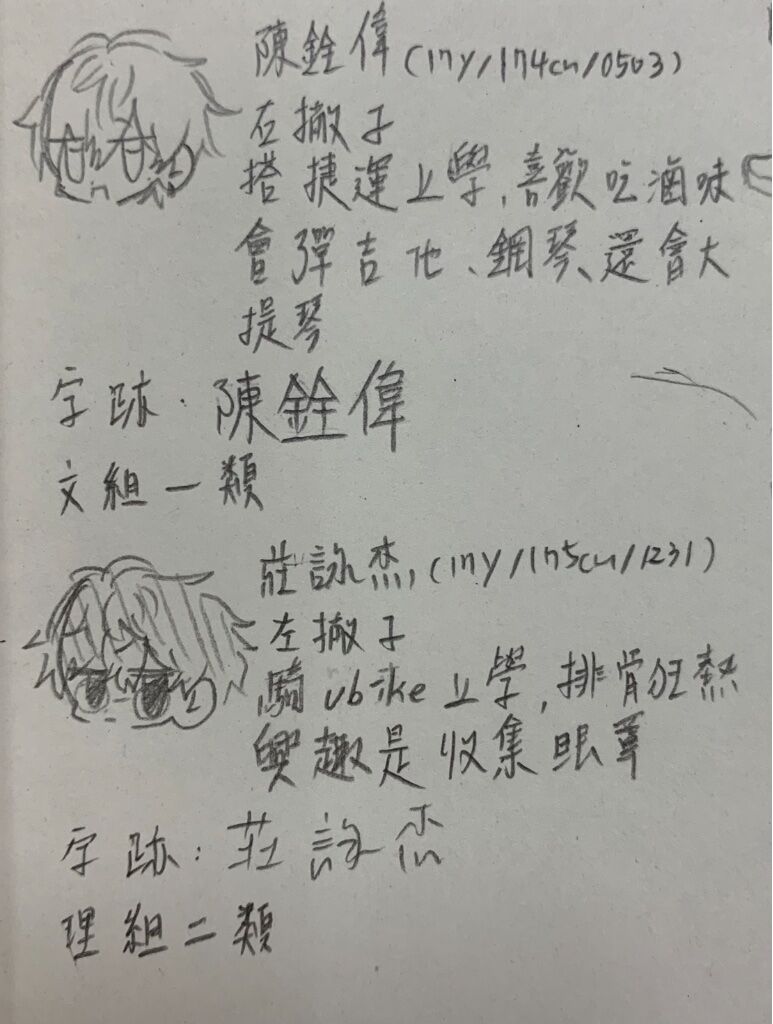 陳銓偉(17y/174cm/0503)
右撇子
搭捷運上學,喜歡吃滷味
會彈吉他、鋼琴、還會大
提琴
字跡:陳銓偉
文組一類
莊詠杰,(17y/175cm/1231)
左撇子
騎ubike上學,排骨狂熱
興趣是收集眼罩
字跡:莊詠杰
理組二類